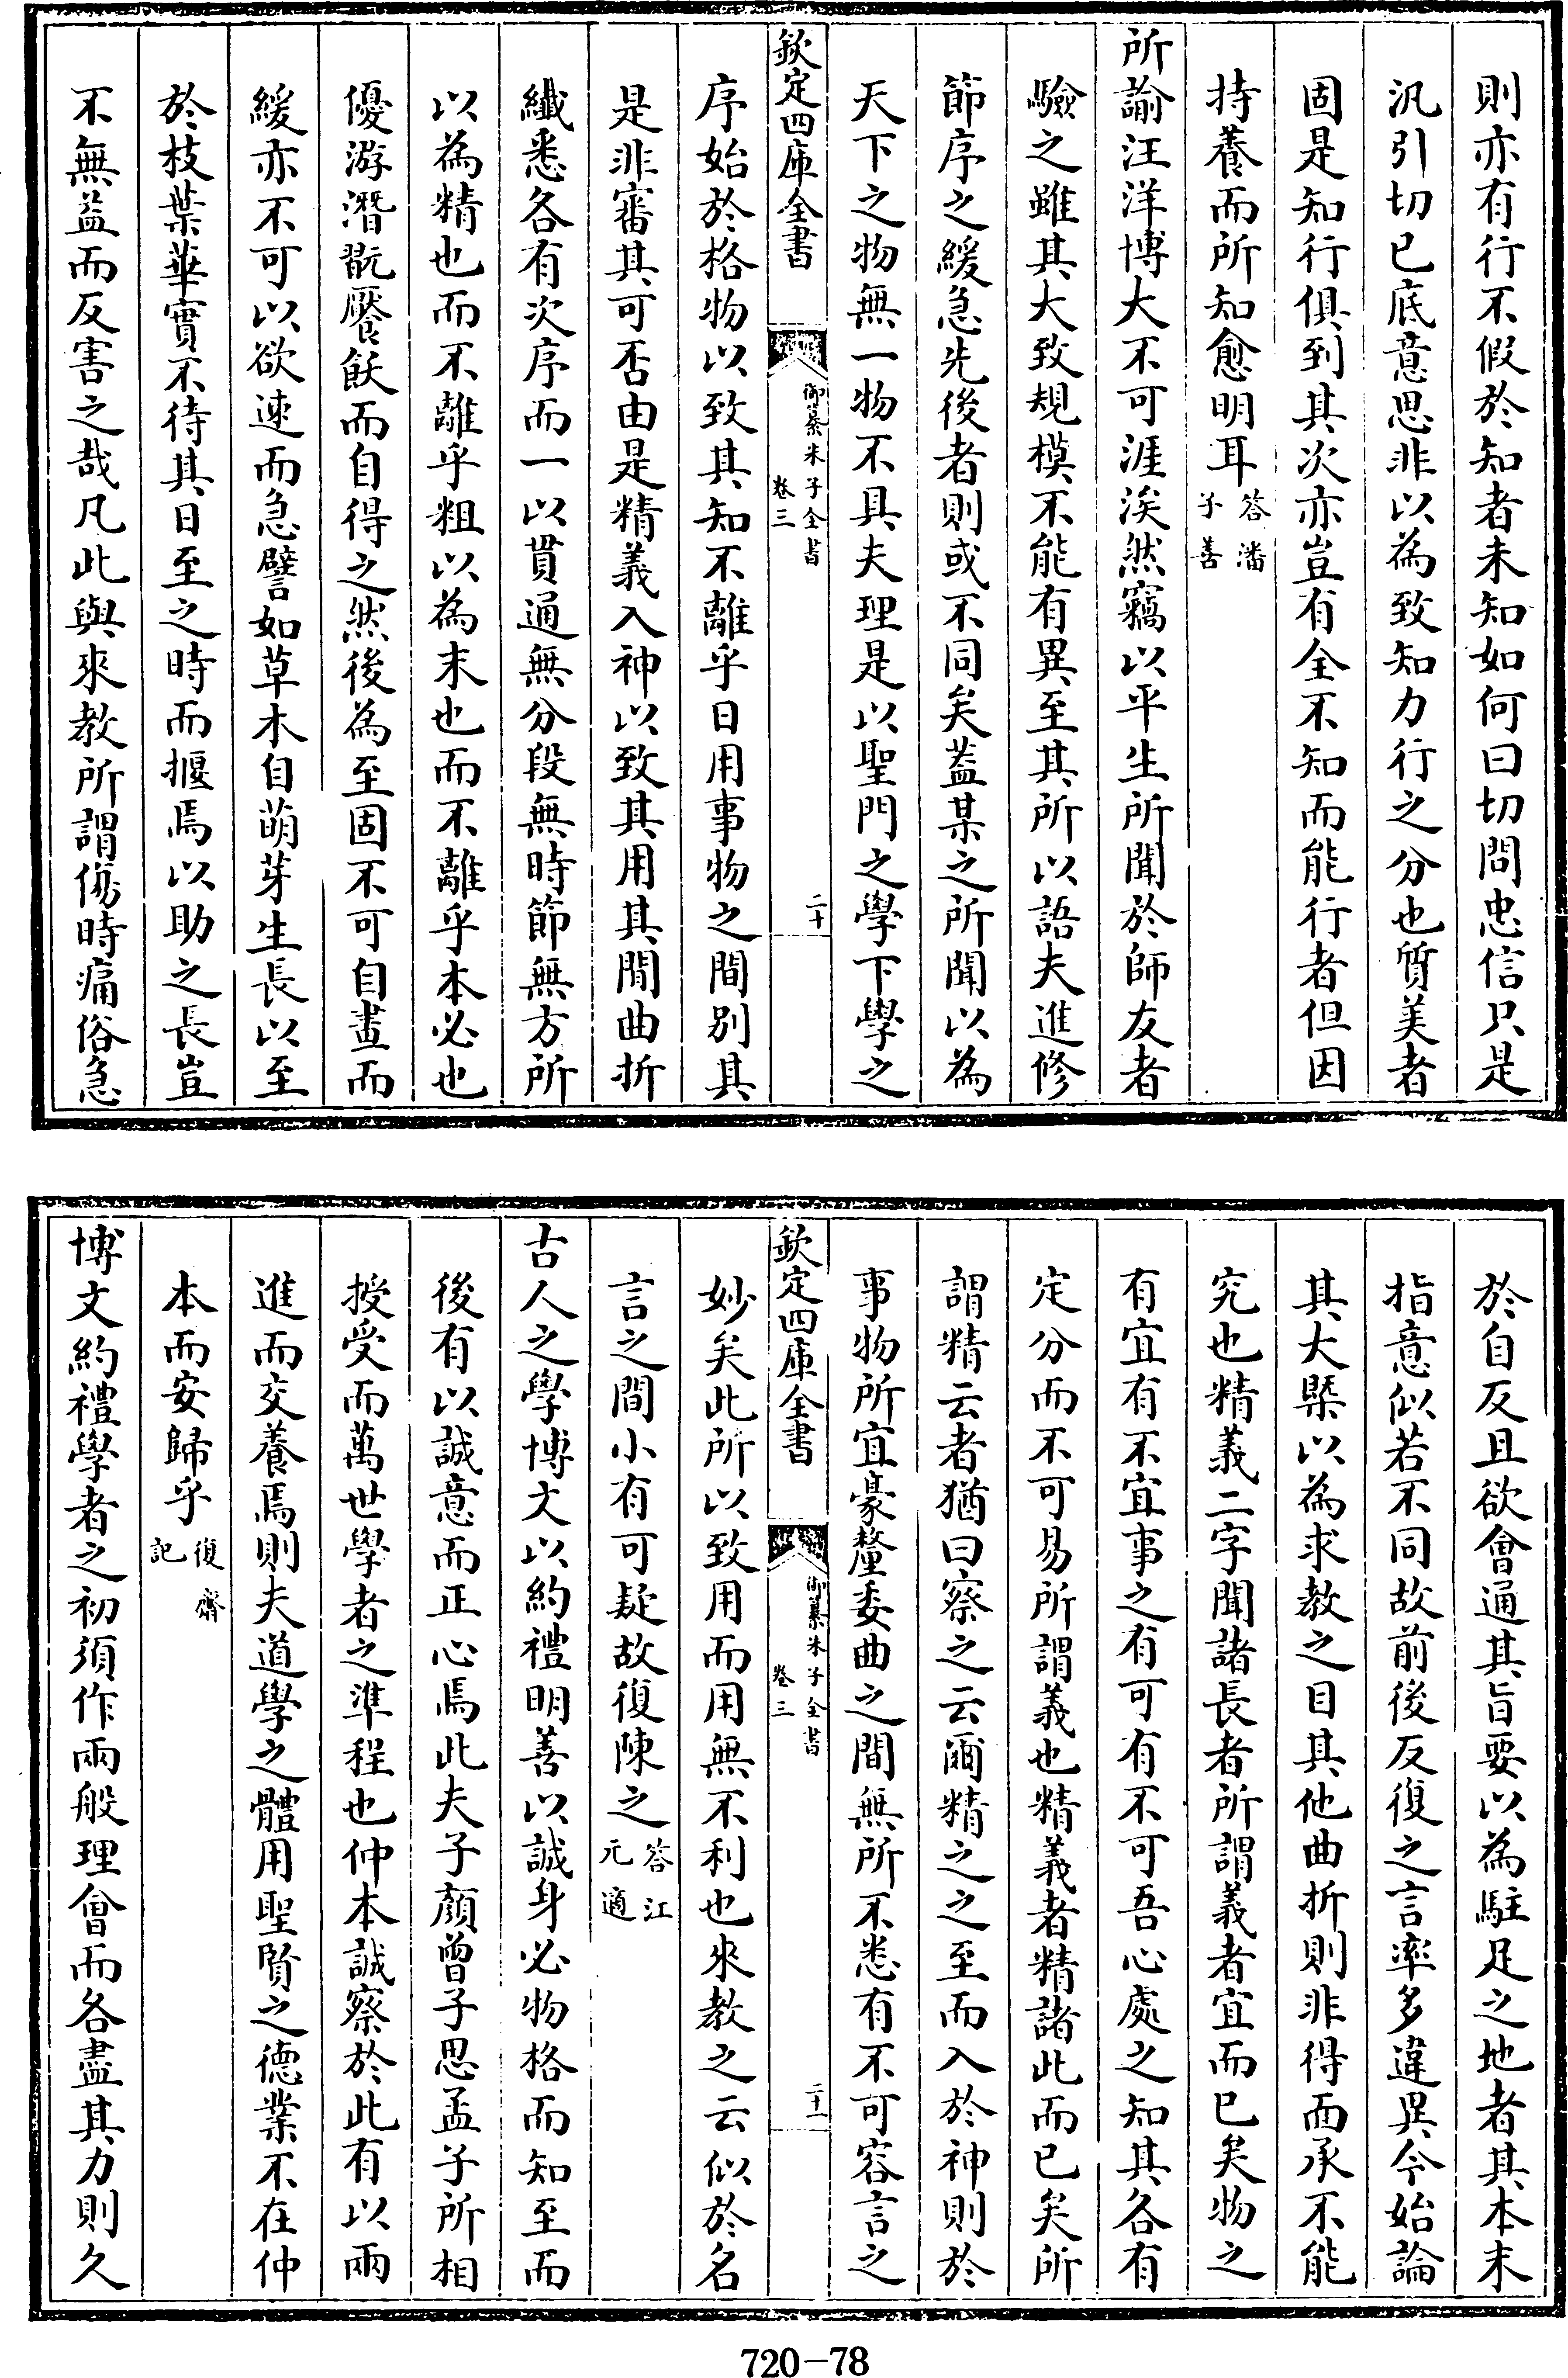 則亦有行不假於知者未知如何曰切問忠信只是
汎引切已底意思非以為致知力行之分也質美者
固是知行俱到其次亦豈有全不知而能行者但因
持養而所知愈明耳答潘子善
所諭汪洋博大不可涯涘然竊以平生所聞於師友者
驗之雖其大致規模不能有異至其所以語夫進修
節序之緩急先後者則或不同矣蓋某之所聞以為
天下之物無一物不具夫理是以聖門之學下學之
欽定四庫全書 御纂朱子全書 卷三 二十
序始於格物以致其知不離乎日用事物之間別其
是非審其可否由是精義入神以致其用其間曲折
纖悉各有次序而一以貫通無分段無時節無方所
以為精也而不離乎粗以為末也而不離乎本必也
優游潛翫饜飫而自得之然後為至固不可自畫而
緩亦不可以欲速而急譬如草木自萌芽生長以至
於枝葉華實不待其日至之時而揠焉以助之長豈
不無益而反害之哉凡此與來教所謂傷時痛俗急
於自反且欲會通其旨要以為駐足之地者其本末
指意似若不同故前後反復之言率多違異今始論
其大槩以為求教之目其他曲折則非得面承不能
究也精義二字聞諸長者所謂義者宜而已矣物之
有宜有不宜事之有可有不可吾心處之知其各有
定分而不可易所謂義也精義者精諸此而已矣所
謂精云者猶曰察之云爾精之之至而入於神則於
事物所宜豪釐委曲之間無所不悉有不可容言之
欽定四庫全書 御纂朱子全書 卷三 二十一
妙矣此所以致用而用無不利也來教之云似於名
言之間小有可疑故復陳之答江元適
古人之學博文以約禮明善以誠身必物格而知至而
後有以誠意而正心焉此夫子顏曾子思孟子所相
授受而萬世學者之準程也仲本誠察於此有以兩
進而交養焉則夫道學之體用聖賢之德業不在仲
本而安歸乎復齋記
博文約禮學者之初須作兩般理會而各盡其力則久
720-78